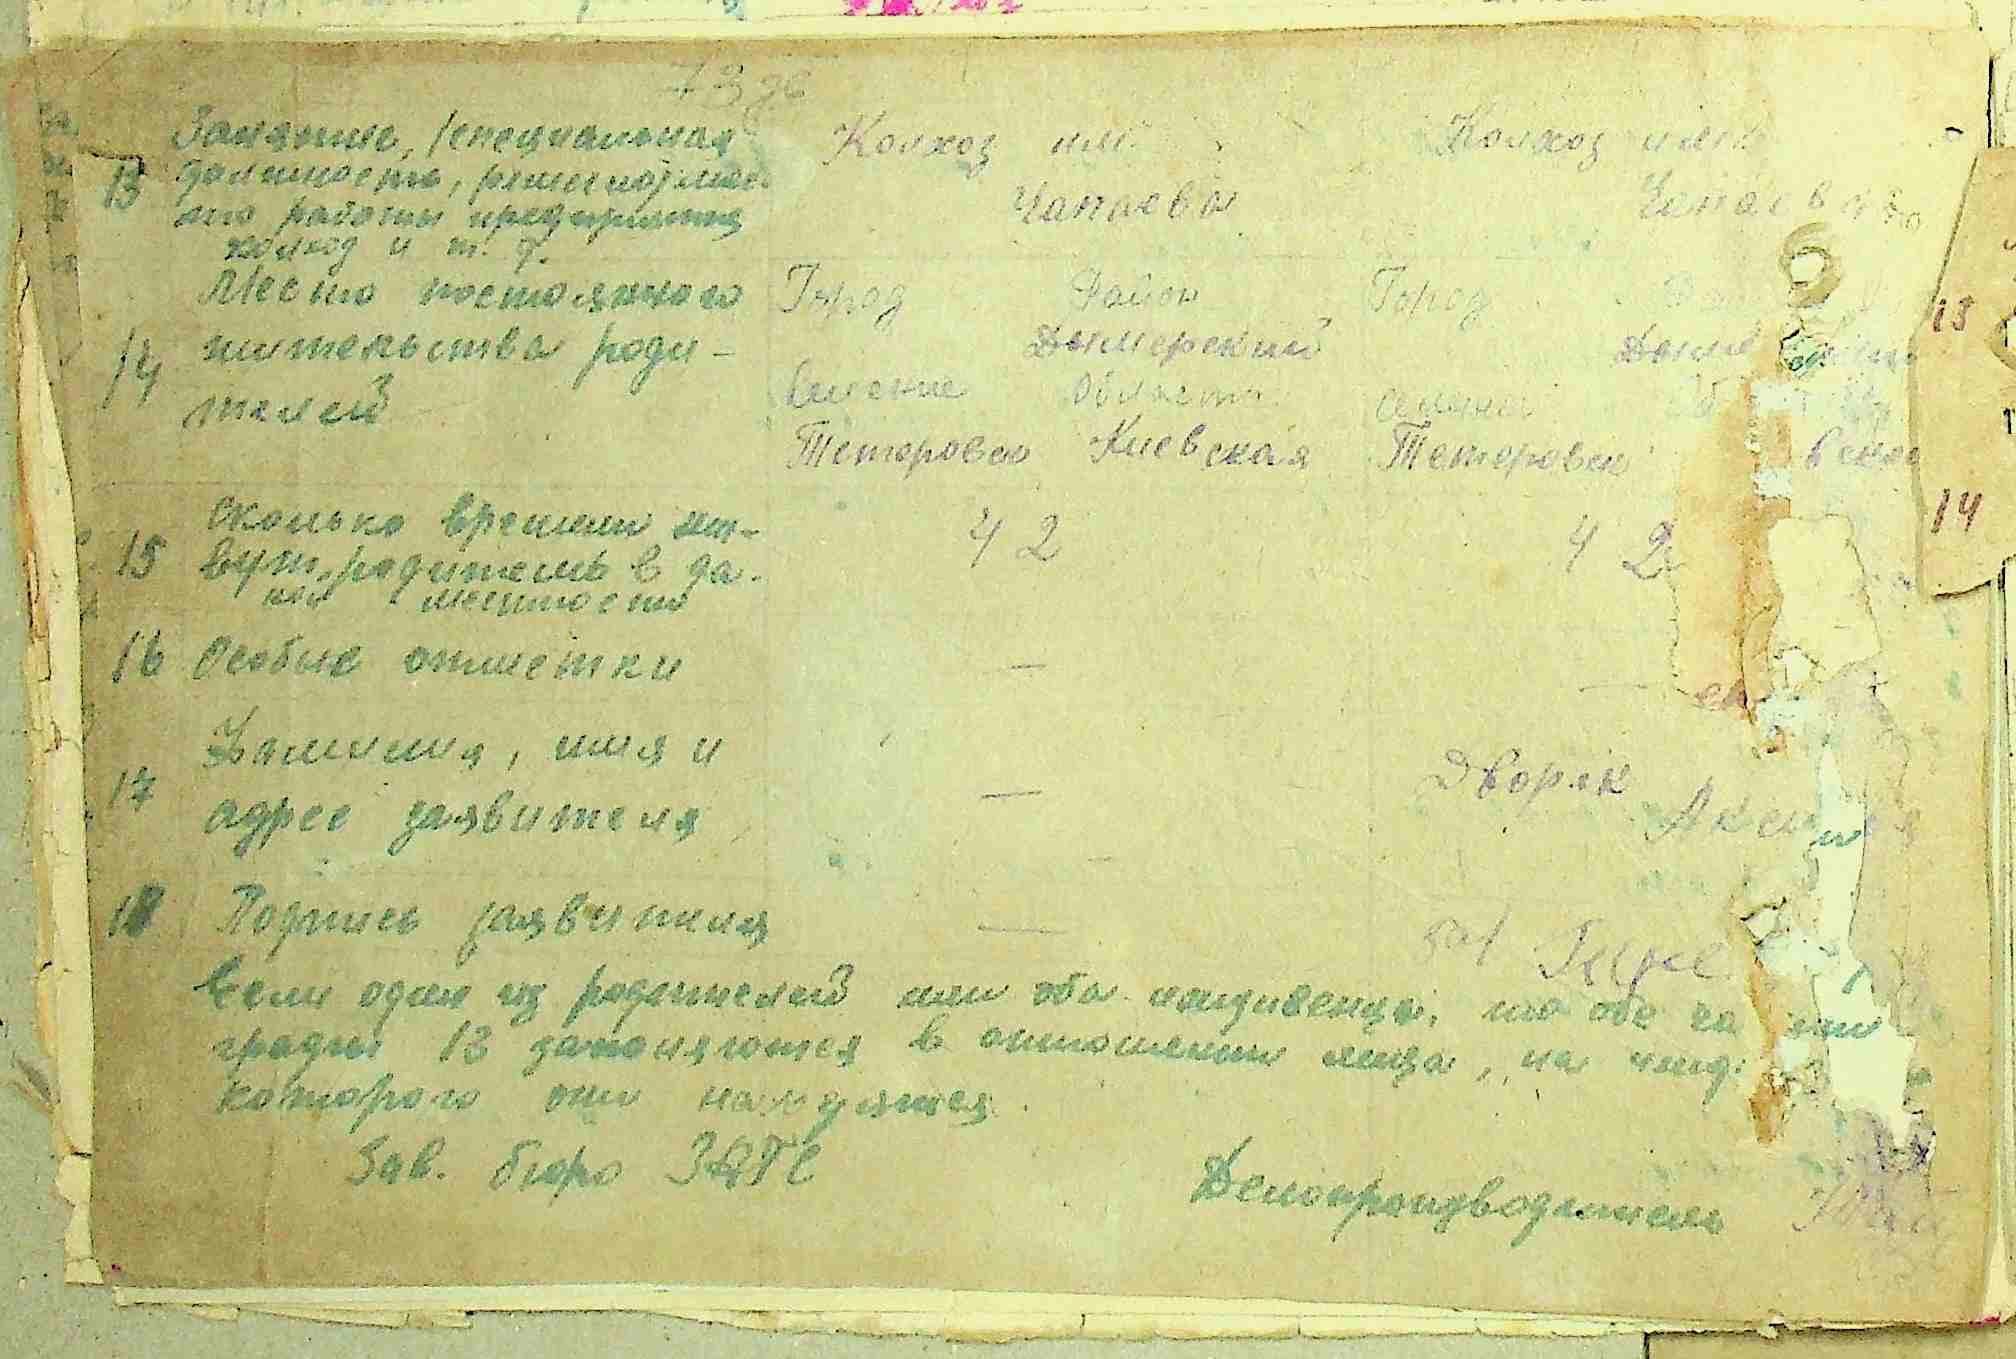 73 об
13 Занятие, /специальная
должность, ремесло/ мес-
то работы предприятия
колхоз и т. д.
Колхоз им.
Чапаева
Колхоз имен
Чапаева
14 Место постоянного
жительства роди-
телей
Город Район
Дымерский
Селение Область
Тетеровско Киевская
Город
Дымерский
Селение
Тетеровско
15 Сколько времени жи-
вут родитель в да-
ной местности
42
42
16 Особые отметки — —
17 Фамилия, имя и
адрес заявителя
—
Дворяк
18 Подпись заявителя —
Если один из родителей или оба иждивенцы, то обе
графы 13 заполняются в отношении лица, на ижд
которого они находятся.
Зав. бюро ЗАГС
Делопроизводитель
13
14